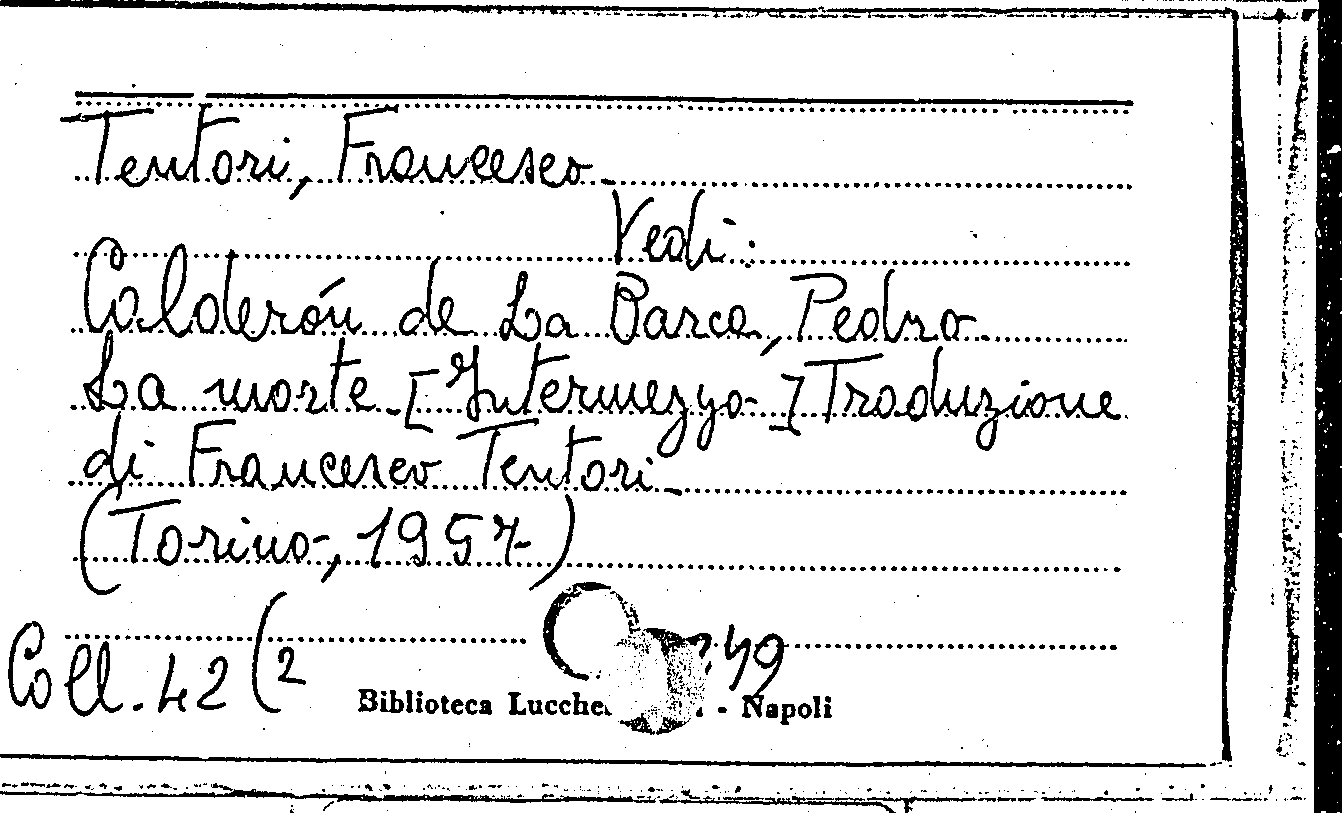 Tentori, Francesco.
Vedi:
Calderón de La Barca, Pedro.
La morte. [Intermezzo.] Traduzione
di Francesco Tentori.
(Torino, 1957)
Coll. 42 (2 49
Biblioteca - Napoli